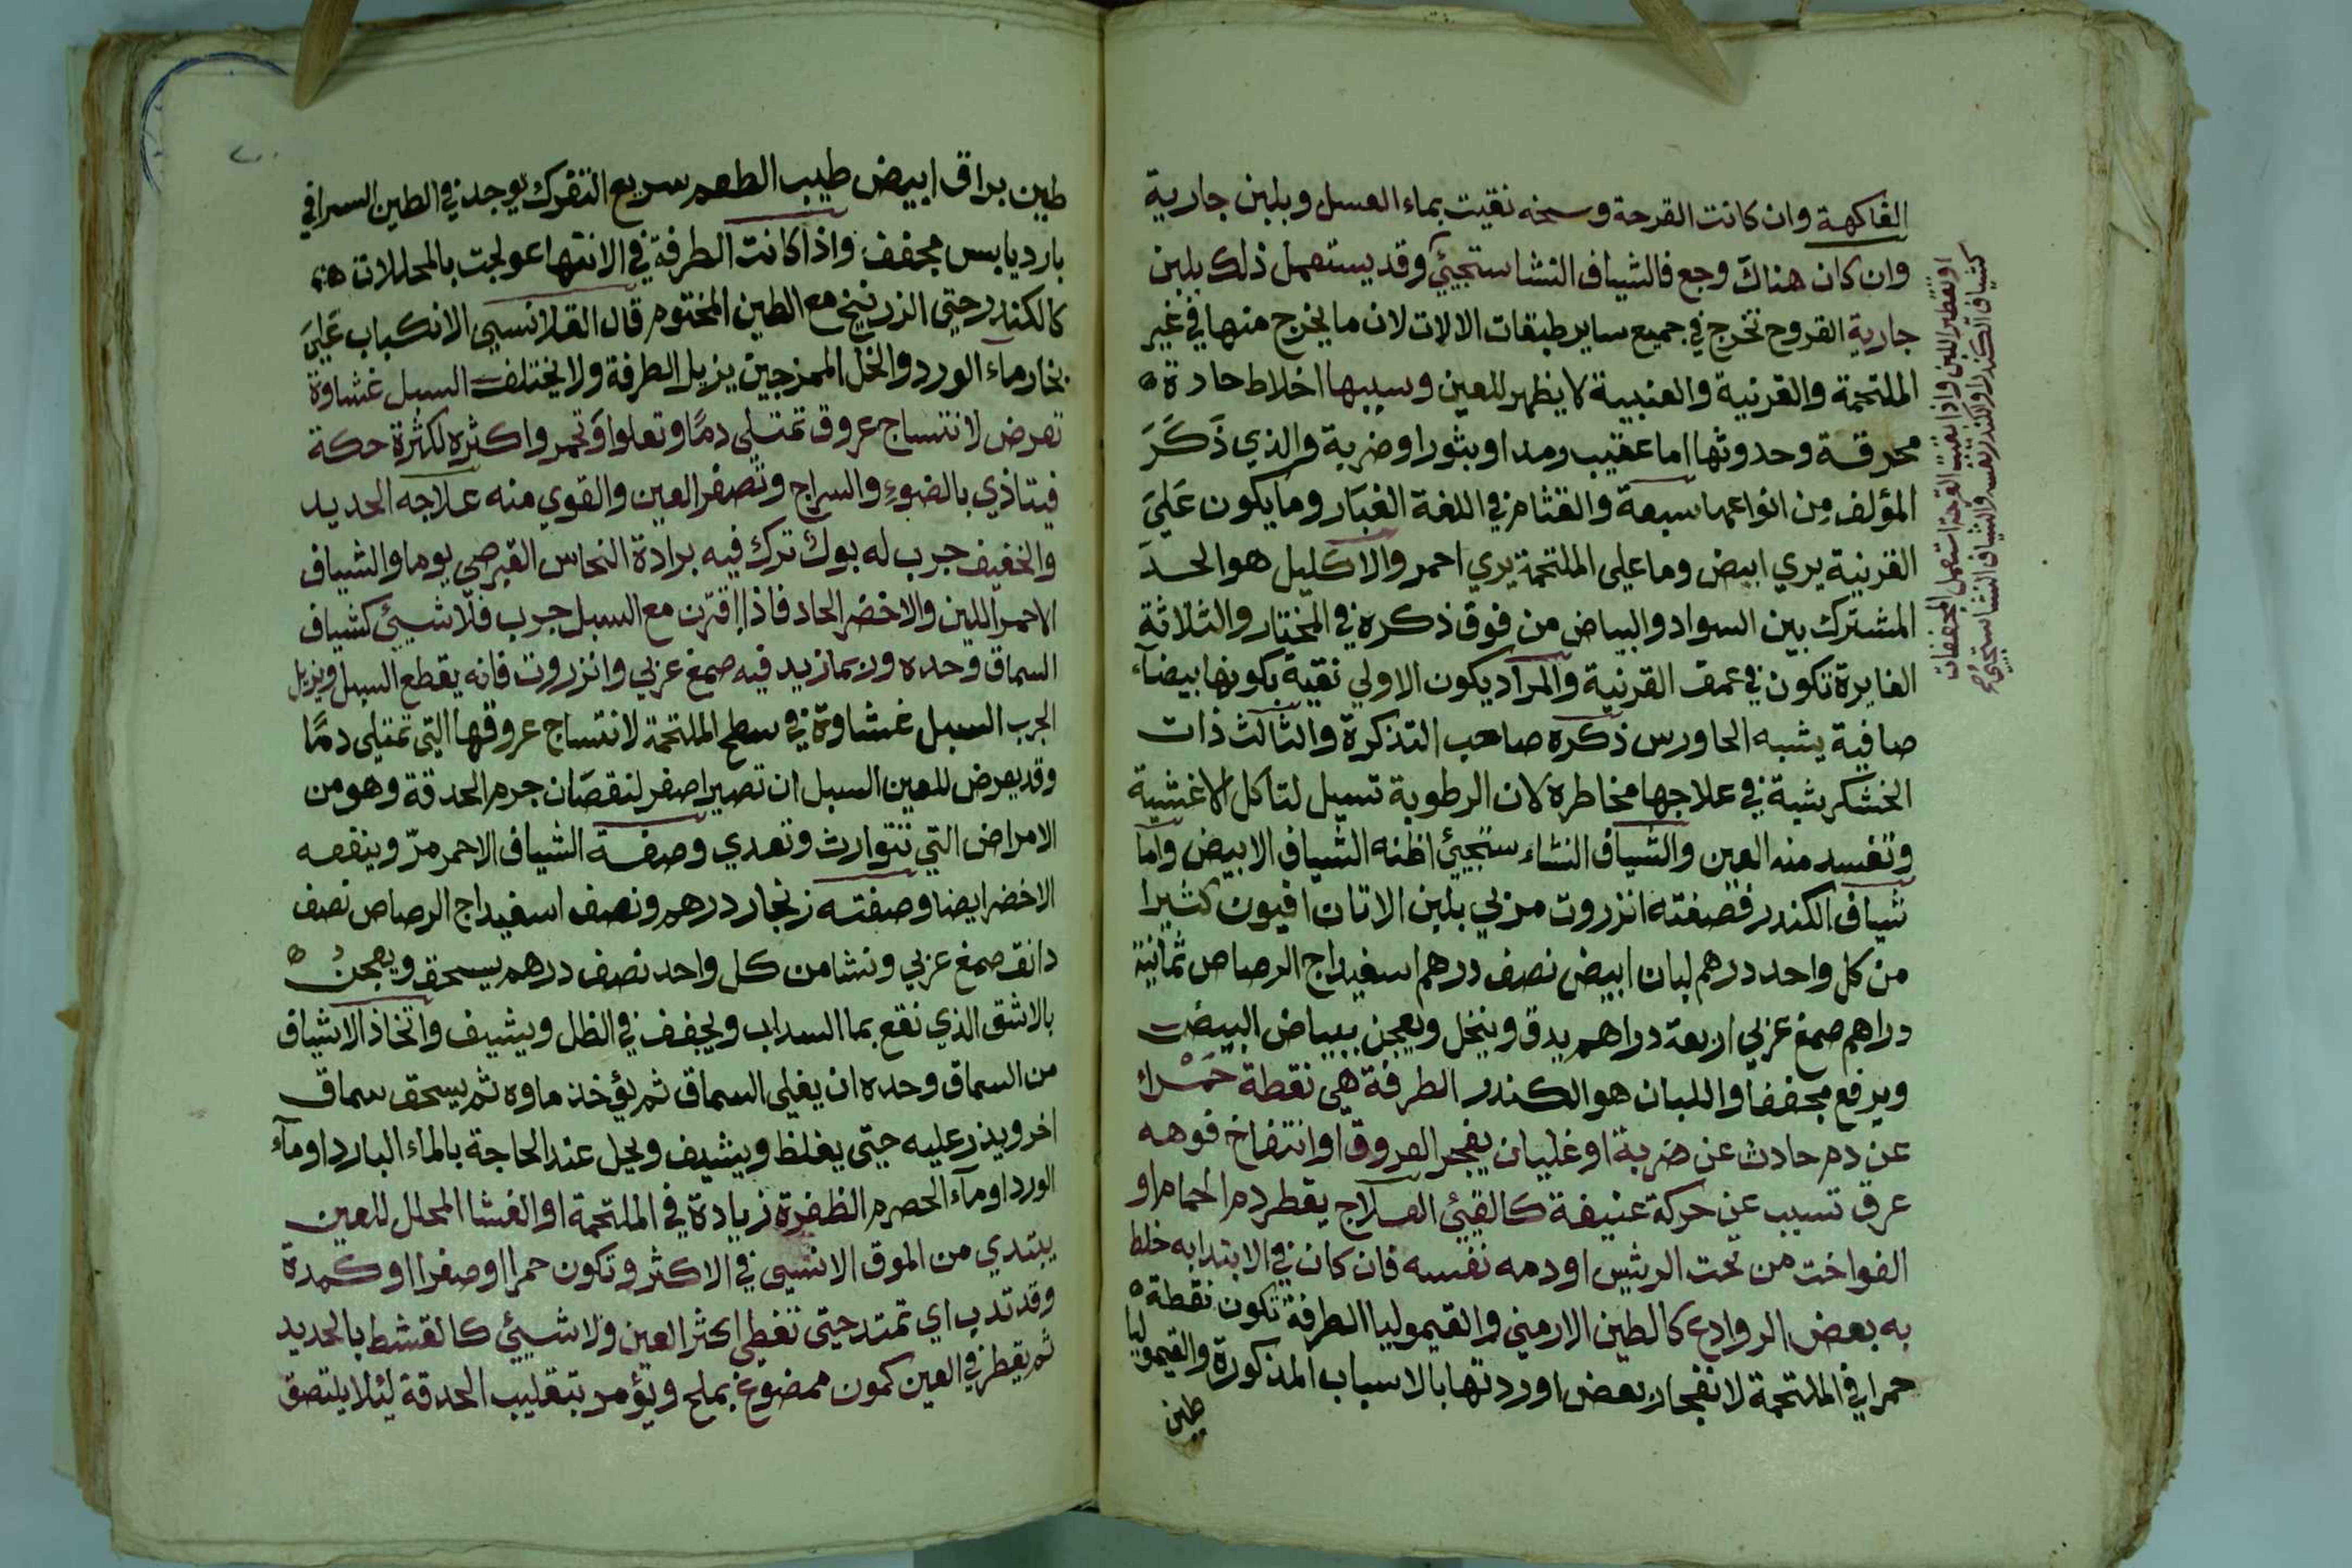 الفاكهة وان كانت القرحة وسخه نقيت بماء العسل وبلبن جارية
وان كان هناك وجع فالشياف النشاستجيئي وقد يستعمل ذلك بلبن
جارية القروح تخرج في جميع ساير طبقات الالات لان ما يخرج منها في غير
الملتحمة والقرنية والعنبية لا يظهر للعين وسببها اخلاط حادة
محرقة وحدوثها اما عقيب رمد او بثور او ضربة والذي ذكر
المؤلف من انواعها سبعة والقثام في اللغة الغبار وما يكون علي
القرنية يري ابيض وما علي الملتحمة يري احمر والاكليل هو الحد
المشترك بين السواد والبياض من فوق ذكره في المختار والثلاثة
الغايرة تكون في عمق القرنية والمراد يكون الاولي نقية بكونها بيضآء
صافية يشبه الجاورس ذكره صاحب التذكرة والثالث ذات
الخشكريشية في علاجها مخاطرة لان الرطوبة تسيل لتاكل الاغشية
وتفسد منه العين والشياف النشاء ستجيئي اظنه الشياف الابيض واما
شياف الكندر فصفته انزروت مربي بلبن الاتان افيون كثيرا
من كل واحد درهم لبان ابيض نصف درهم اسفيداج الرصاص ثمانية
دراهم صمغ عربي اربعة دراهم يدق وينخل ويعجن ببياض البيض
ويرفع مجففا واللبان هو الكندر الطرفة هي نقطة حمرا
عن دم حادث عن ضربة او غليان يفجر العروق او انتفاخ فوهه
عرق تسبب عن حركة عنيفة كالقيئي العلاج يقطر دم الحمام او
الفواخت من تحت الريش او دمه نفسه فان كان في الابتدا به خلط
به بعض الروادع كالطين الارمني والقيموليا الطرفة تكون نقطة
حمرا في الملتحمة لانفجار بعض اوردتها بالاسباب المذكورة والقيموليا
طين
او تقطير اللبن واذا نقيت القرحة استعمل المجففات
كشياف الكندر او الكندر نفسه والشياف النشاستجيئي
طين براق ابيض طيب الطعم سريع التفرك يوجد في الطين السرافي
بارد يابس مجفف واذا كانت الطرفة في الانتها عولجت بالمحللات
كالكندر حتي الزرنيخ مع الطين المختوم قال القلانسي الانكباب علي
بخار ماء الورد والخل الممزجين يزيل الطرفة ولا يختلف السبل غشاوة
تعرض لانتساج عروق تمتلي دما وتعلوا وتحمر واكثره لكثرة حكة
فيتاذي بالضوء والسراج وتصغر العين والقوي منه علاجه الحديد
والخفيف جرب له بول ترك فيه برادة النحاس القبرصي يوما والشياف
الاحمر اللين والاخضر الحاد فاذا اقترن مع السبل جرب فلا شيئي كشياف
السماق وحده وربما زيد فيه صمغ عربي وانزروت فانه يقطع السبل ويزيل
الجرب السبل غشاوة في سطح الملتحمة لانتساج عروقها التي تمتلي دما
وقد يعرض للعين السبل ان تصير اصغر لنقصان جرم الحدقة وهو من
الامراض التي تتوارث وتعدي وصفة الشياف الاحمر مر وينفعه
الاخضر ايضا وصفته زنجار درهم ونصف اسفيداج الرصاص نصف
دانق صمغ عربي ونشا من كل واحد نصف درهم يسحق ويعجن
بالاشق الذي نقع بما السداب ويجفف في الظل ويشيف واتخاذ الاشياف
من السماق وحده ان يغلي السماق ثم يؤخذ ماوه ثم يسحق سماق
اخر ويذر عليه حتي يغلظ ويشيف ويحل عند الحاجة بالماء البارد او مآء
الورد او مآء الحصرم الظفرة زيادة في الملتحمة او الغشا المحلل للعين
يبتدي من الموق الانسي في الاكثر وتكون حمرا او صفرا او كمدة
وقد تدب اي تمتد حتي تغطي اكثر العين ولا شيئي كالقشط بالحديد
ثم يقطر في العين كمون ممضوغ بملح ويؤمر بتقليب الحدقة لئلا يلتصق